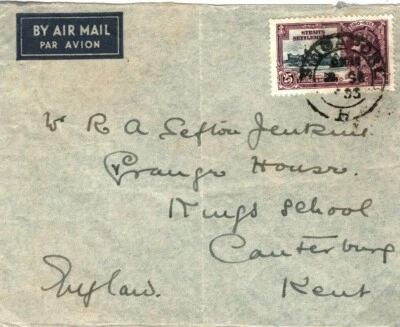 BY AIR MAIL
PAR AVION
STRAITS
SETTLEMENTS
25
SINGAPORE
H
W R A Sefton Jenkins
Grange House.
Kings School
Canterbury
Kent
England.